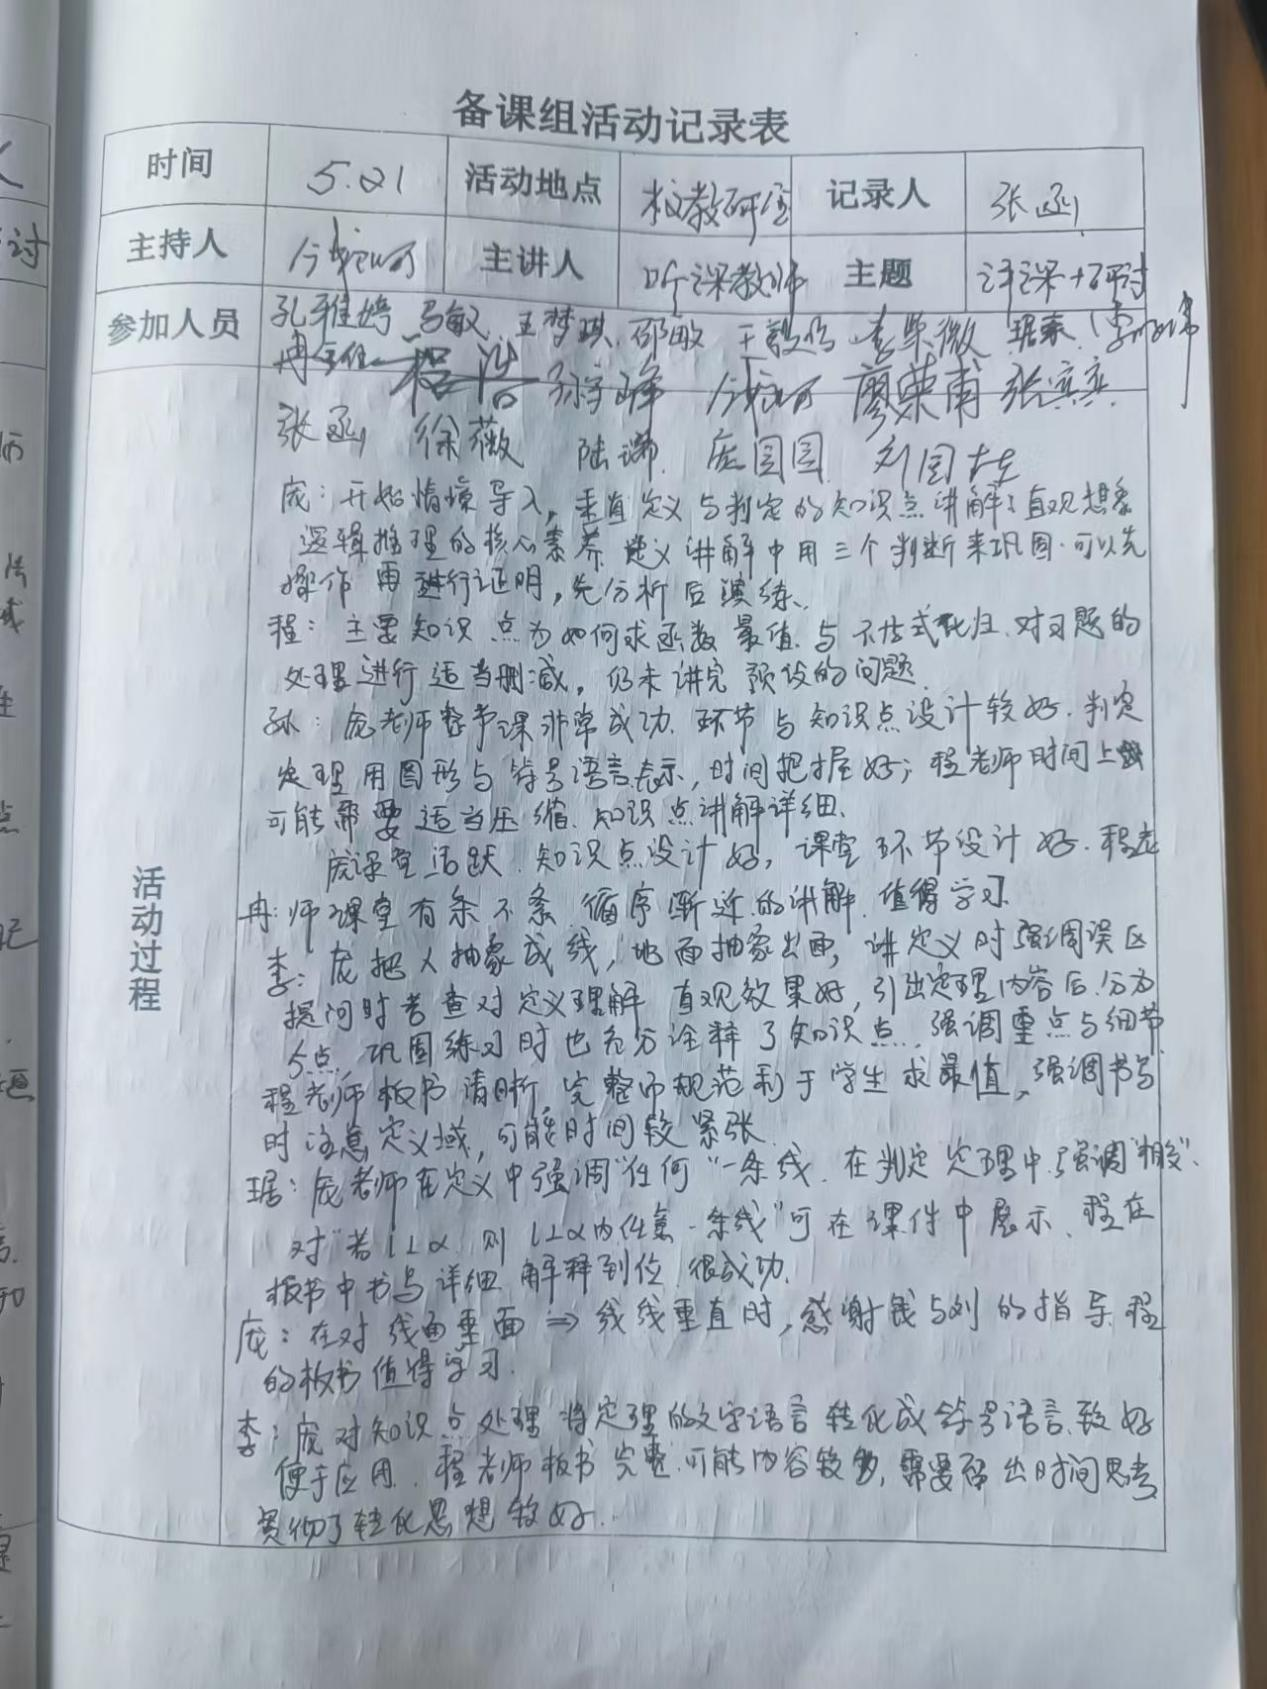 备课组活动记录表
时间 5.21 活动地点 校教研室 记录人 张函
主持人 主讲人 听课教师 主题 评课+研讨
参加人员 孔雅娉 马敏 王梦琪 邵敏 李紫薇 琚泰
冉主任 程浩 孙宇峰 廖荣甫 张宾宾
张函 徐薇 陆瑞 庞圆圆 刘国柱
活动过程
庞：开始情境导入，垂直定义与判定的知识点讲解；直观想象
逻辑推理的核心素养 定义讲解中用三个判断来巩固.可以先
操作再进行证明，先分析后演练.
程：主要知识点为如何求函数最值.与不等式化归.对习题的
处理进行适当删减，仍未讲完预设的问题.
孙：庞老师整节课非常成功.环节与知识点设计较好.判定
定理用图形与符号语言表示，时间把握好；程老师时间上
可能需要适当压缩.知识点讲解详细.
庞课堂活跃.知识点设计好，课堂环节设计好.程老
冉：师课堂有条不紊.循序渐近的讲解.值得学习.
李：庞把人抽象成线，地面抽象出面，讲定义时强调误区
提问时考查对定义理解 直观效果好，引出定理内容后.分为
5点，巩固练习时也充分诠释了知识点.强调重点与细节.
程老师板书清晰，完整而规范利于学生求最值，强调书写
时注意定义域，可能时间较紧张.
琚：庞老师在定义中强调“任何”一条线.在判定定理中.强调“相交”.
对“若l⊥α.则l⊥α内任意一条线”可在课件中展示.程在
板书中书写详细 解释到位.很成功.
庞：在对线面垂面⇒线线垂直时，感谢钱与刘的指导.程
的板书值得学习.
李：庞对知识点处理 将定理的文字语言转化成符号语言.较好
便于应用.程老师板书完整.可能内容较多，需要留出时间思考
贯彻了转化思想较好.